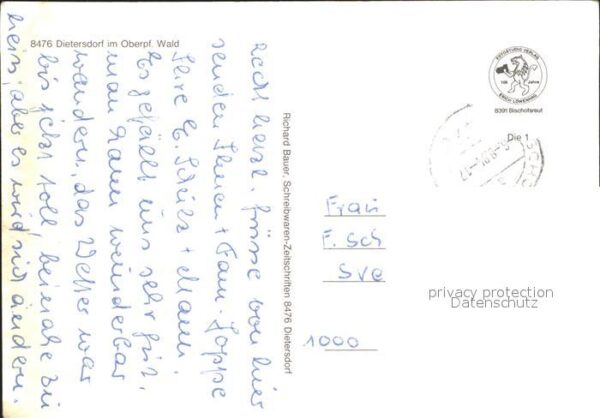 8476 Dietersdorf im Oberpf. Wald
Recht herzl. Grüsse von hier
senden Ihnen + Fam. Joppe
Ihre E. Schulz + Mann.
Es gefällt uns sehr gut,
man kann wunderbar
wandern, das Wetter war
bis jetzt toll, beinahe zu
heiss, aber es wird sich ändern.
Richard Bauer, Schreibwaren-Zeitschriften 8476 Dietersdorf
FOTOSTUDIO VERLAG
100 Jahre
8391 Bischofsreut
Die 1
Frau
F. Sch
Sve
1000
privacy protection
Datenschutz